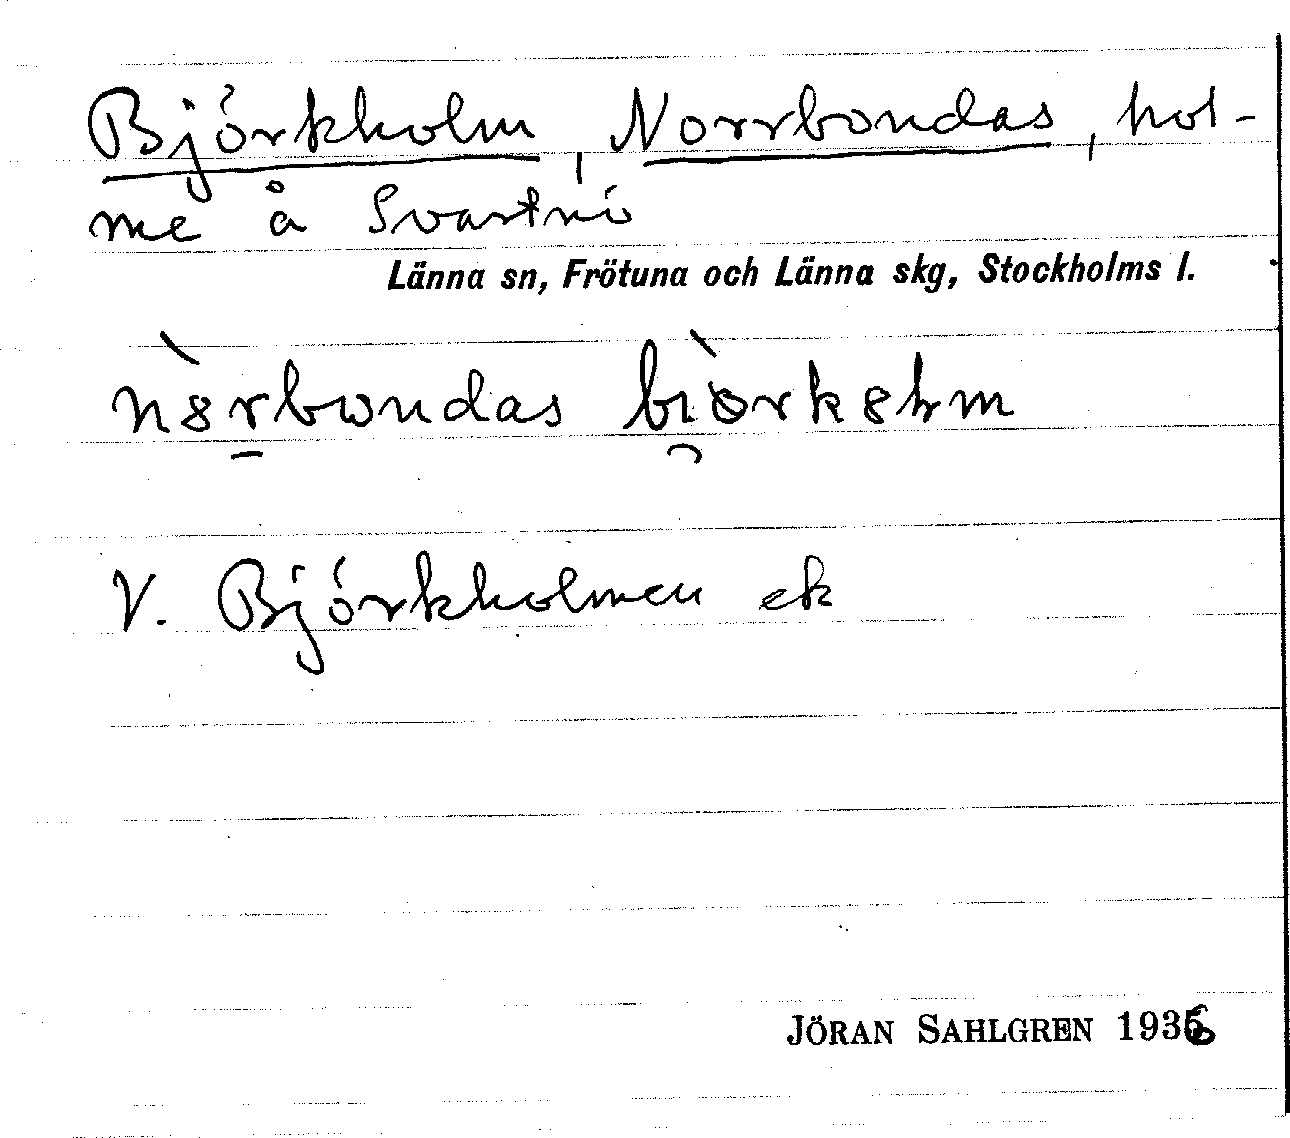 Björkholm, Norrbondas, hol-
me å Svartnö
Länna sn, Frötuna och Länna skg, Stockholms l.
V. Björkholmen ek
JÖRAN SAHLGREN 1936